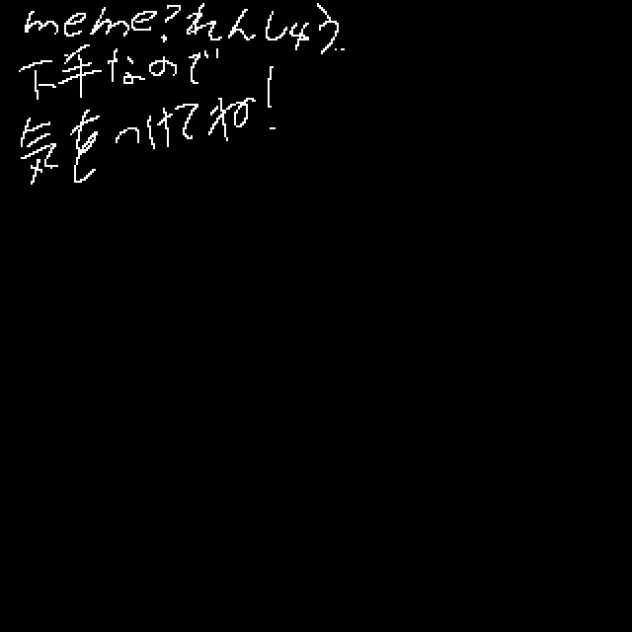 meme?れんしゅう..
下手なので
気をつけてね!